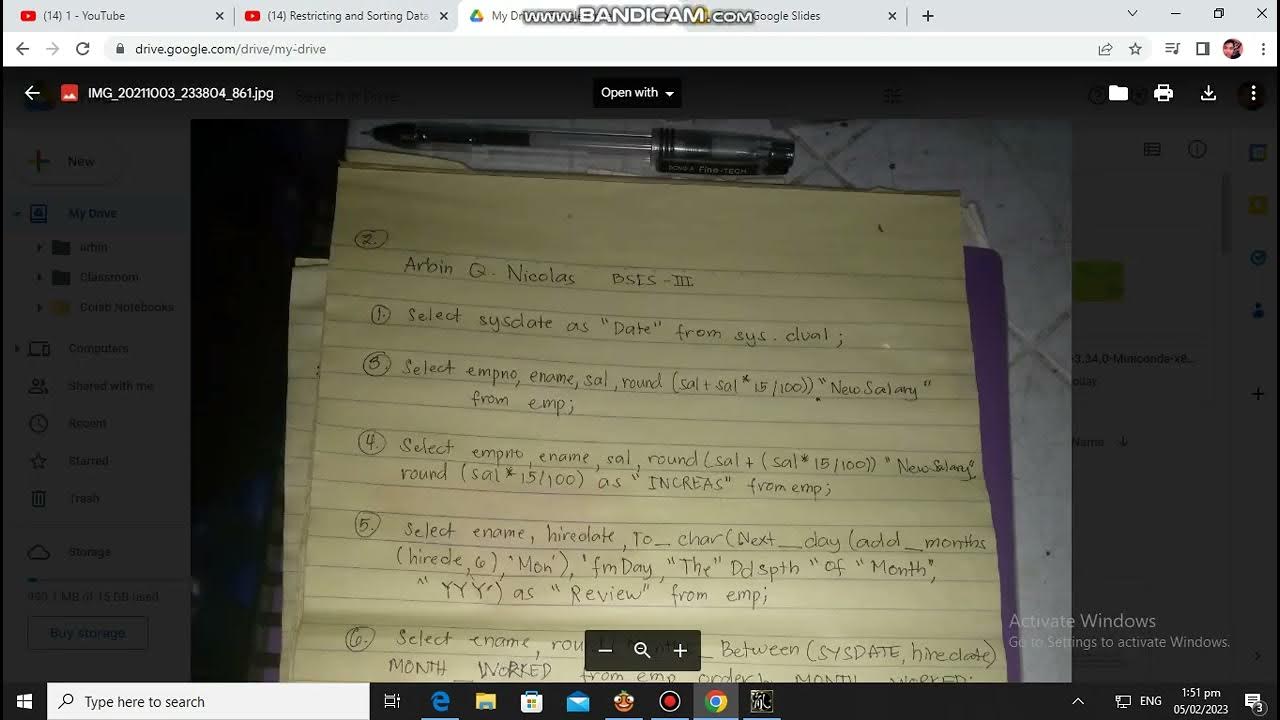 (14) 1 - YouTube
(14) Restricting and Sorting Data
My Dri
WWW.BANDICAM.COM
Google Slides
drive.google.com/drive/my-drive
IMG_20211003_233804_861.jpg
Open with
New
My Drive
Arbin
Classroom
Colab Notebooks
Computers
Shared with me
Recent
Starred
Trash
Storage
990.1 MB of 15 GB used
Buy storage
DONG-A Fine-TECH
2.
Arbin Q. Nicolas BSIS-III
1. Select sysdate as "Date" from sys. dual;
3. Select empno, ename, sal, round (sal + sal * 15/100)) "New Salary"
from emp;
4. Select empno, ename, sal, round (sal + (sal * 15/100)) "New Salary",
round (sal * 15/100) as "INCREAS" from emp;
5. Select ename, hiredate, To_char (Next_day (add_months
(hirede, 6), 'Mon'), 'fmDay, "The" Ddspth "Of "Month",
"YYYY') as "Review" from emp;
6. Select ename, Between (SYSDATE, hiredate)
MONTH_WORKED from emp order by MONTH_WORKED;
Name
Activate Windows
Go to Settings to activate Windows.
Type here to search
ENG
1:51 pm
05/02/2023
3